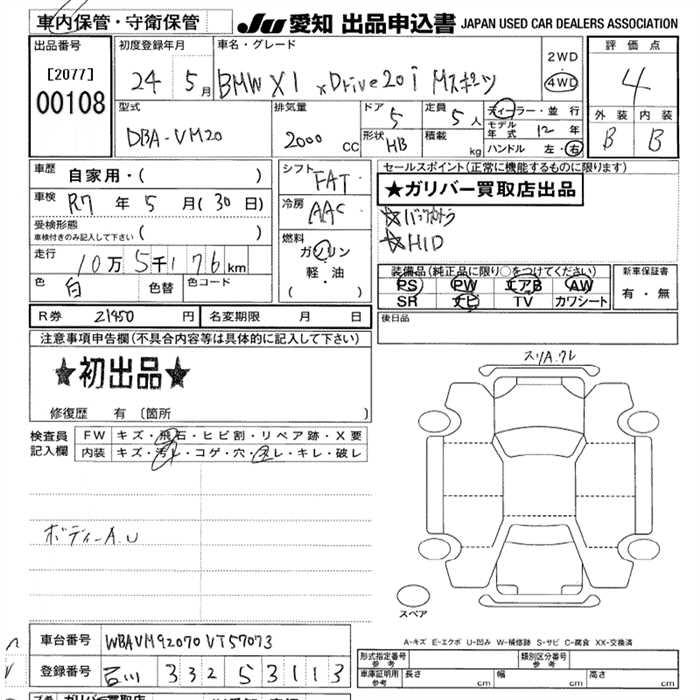 車内保管・守衛保管 JU 愛知 出品申込書 JAPAN USED CAR DEALERS ASSOCIATION
出品番号 初度登録年月 車名・グレード 2WD 評価点
[2077] 24 5月 BMW X1 xDrive20i Mスポーツ 4WD 4
00108 型式 排気量 ドア 定員 ディーラー・並行 外装 内装
DBA-VM20 2000 CC 5 5人 モデル年式 12年 B B
形状 HB 積載 kg ハンドル 左・右
車歴 自家用・( ) シフト FAT セールスポイント(正常に機能するものに限ります)
車検 R7年5月(30日) 冷房 AAC ★ガリバー買取店出品
受検形態 ☆バックカメラ
車検付きのみ記入して下さい( ) 燃料 ☆HID
走行 10万5千176km ガソリン 装備品(純正品に限り○をつけてください) 新車保証書
色 白 色替 色コード 軽・油 PS PW エアB AW 有・無
( ) SR ナビ TV カワシート
R券 21450円 名変期限 月 日 後日品
注意事項申告欄(不具合内容等は具体的に記入して下さい)
スリA.クレ
★初出品★
修復歴 有〔箇所 〕
検査員 FW キズ・飛石・ヒビ割・リペア跡・X要
記入欄 内装 キズ・汚レ・コゲ・穴・スレ・キレ・破レ
ボディーA.U
スペア
A-キズ E-エクボ U-凹み W-補修跡 S-サビ C-腐食 XX-交換済
車台番号 WBAVM92070VT57073
形式指定番号 参考 類別区分番号 参考
登録番号 石川 332 5 3113
車庫証明用 参考 長さ cm 幅 cm 高さ cm
ガリバー買取店